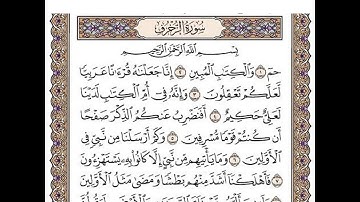 سُورَةُ الزُّخْرُفِ
بِسْمِ اللَّهِ الرَّحْمَٰنِ الرَّحِيمِ
حمٓ ١ وَالْكِتَابِ الْمُبِينِ ٢ إِنَّا جَعَلْنَاهُ قُرْءَانًا عَرَبِيًّا
لَعَلَّكُمْ تَعْقِلُونَ ٣ وَإِنَّهُ فِي أُمِّ الْكِتَابِ لَدَيْنَا
لَعَلِيٌّ حَكِيمٌ ٤ أَفَنَضْرِبُ عَنكُمُ الذِّكْرَ صَفْحًا
أَن كُنتُمْ قَوْمًا مُّسْرِفِينَ ٥ وَكَمْ أَرْسَلْنَا مِن نَّبِيٍّ فِي
الْأَوَّلِينَ ٦ وَمَا يَأْتِيهِم مِّن نَّبِيٍّ إِلَّا كَانُوا بِهِ يَسْتَهْزِءُونَ
٧ فَأَهْلَكْنَا أَشَدَّ مِنْهُم بَطْشًا وَمَضَىٰ مَثَلُ الْأَوَّلِينَ